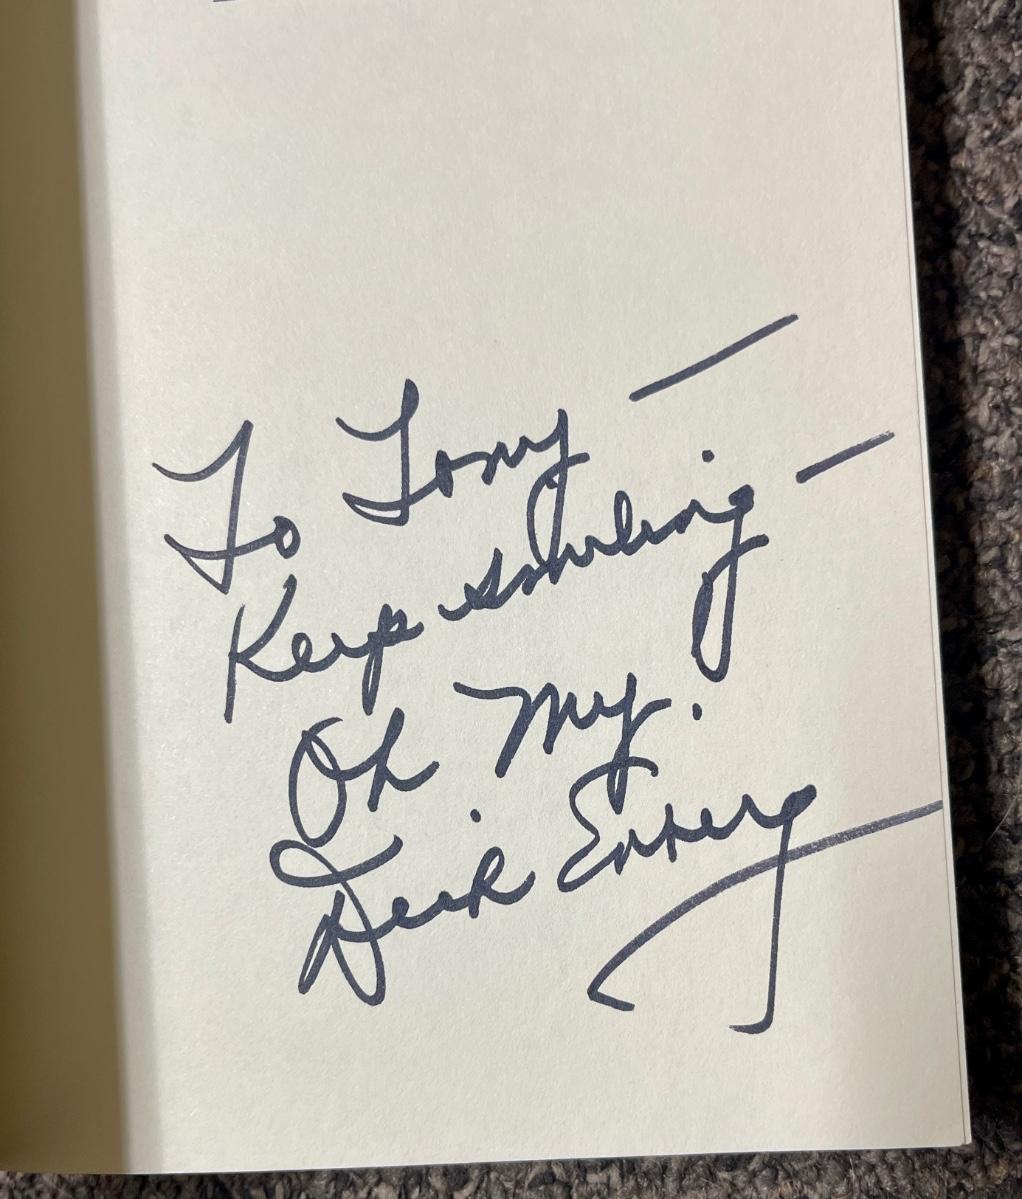 To Tony —
Keep smiling —
Oh My!
Dick Enberg